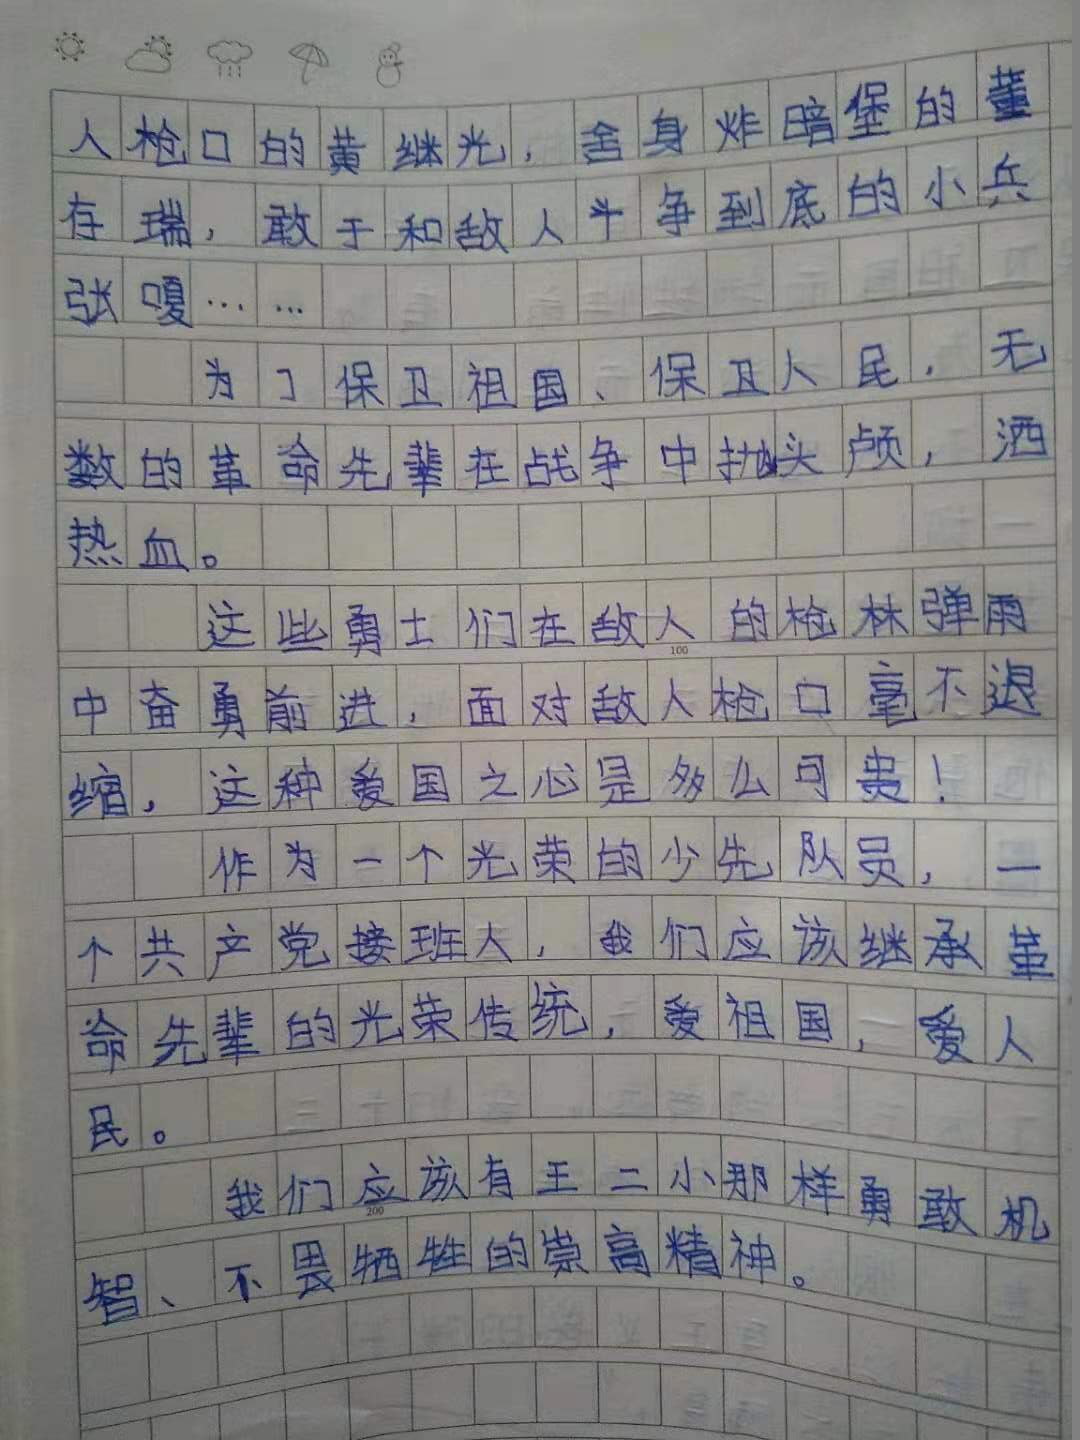 人枪口的黄继光，舍身炸暗堡的董
存瑞，敢于和敌人斗争到底的小兵
张嘎……
为了保卫祖国、保卫人民，无
数的革命先辈在战争中抛头颅，洒
热血。
这些勇士们在敌人的枪林弹雨
100
中奋勇前进，面对敌人枪口毫不退
缩，这种爱国之心是多么可贵！
作为一个光荣的少先队员，一
个共产党接班人，我们应该继承革
命先辈的光荣传统，爱祖国，爱人
民。
我们应该有王二小那样勇敢机
200
智、不畏牺牲的崇高精神。